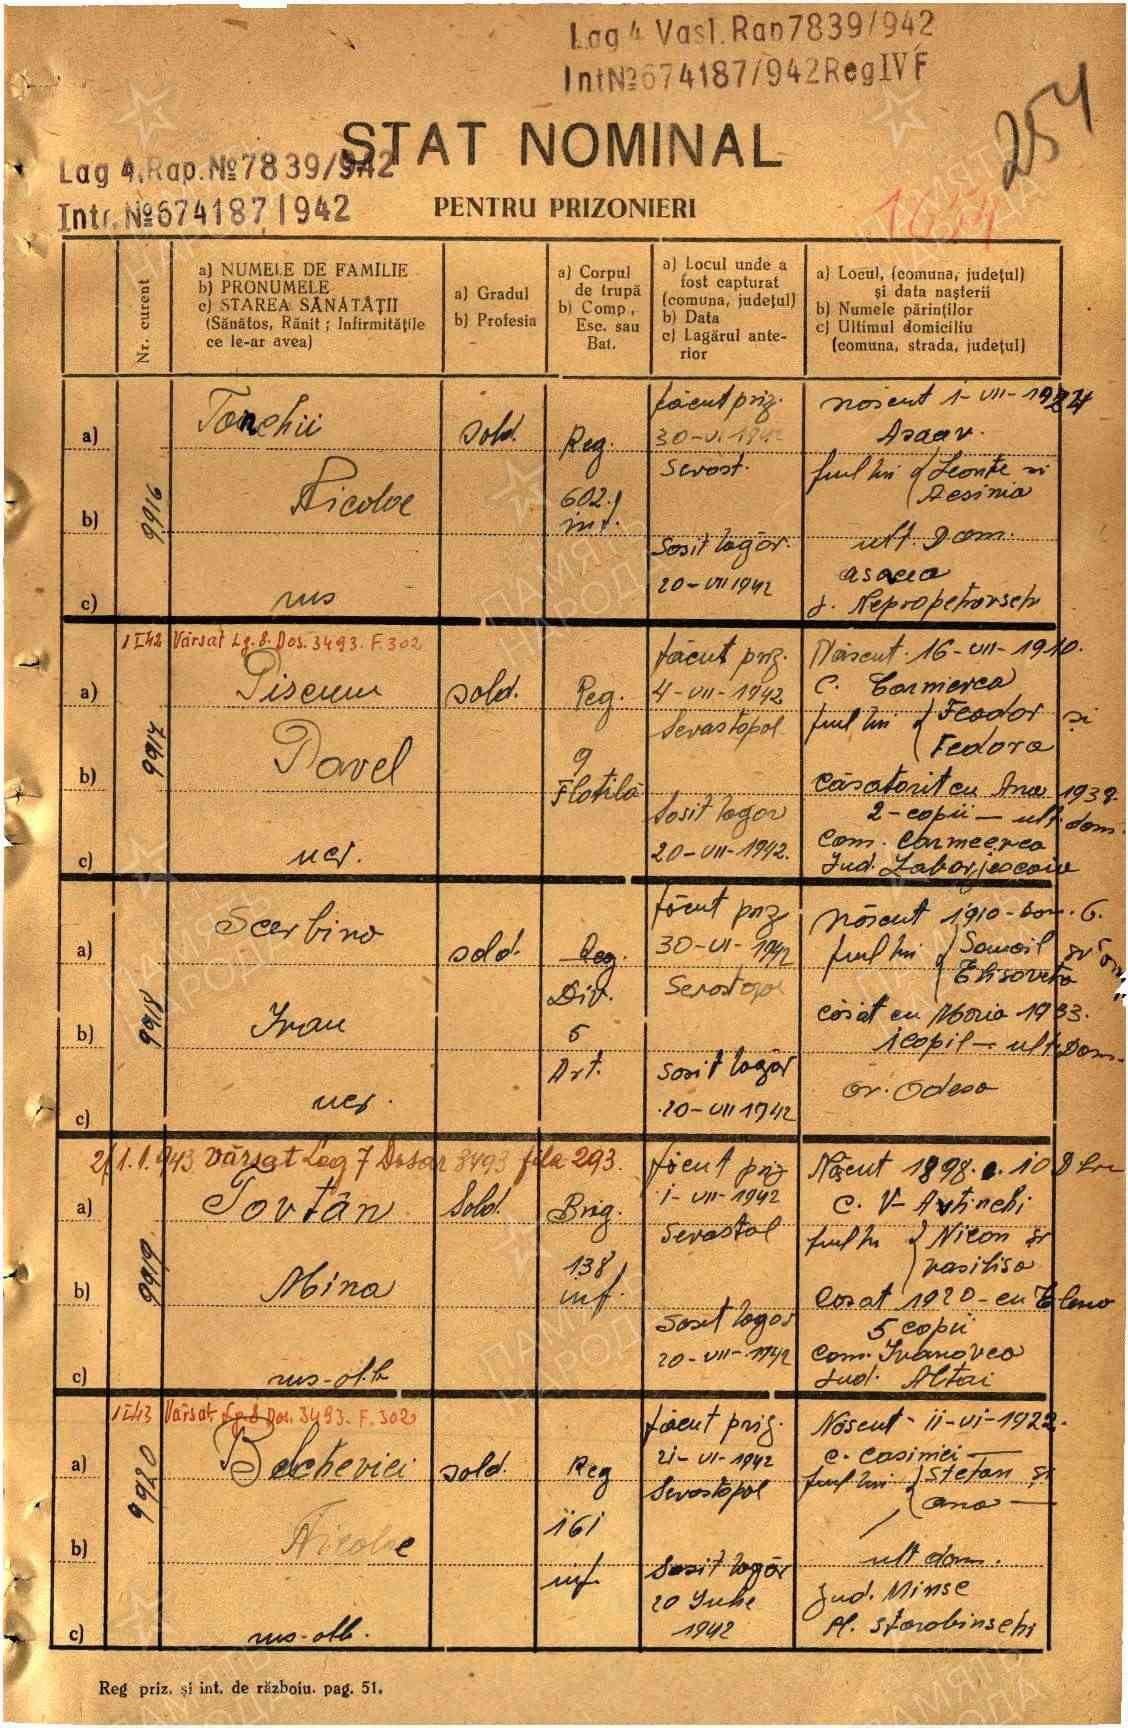 Lag 4 Vasl. Rap 7839/942
Int № 674187/942 Reg IV F
254
STAT NOMINAL
Lag 4. Rap. № 7839/942
Intr. № 674187/942
PENTRU PRIZONIERI
Nr. curent
a) NUMELE DE FAMILIE
b) PRONUMELE
c) STAREA SĂNĂTĂȚII
(Sănătos, Rănit ; Infirmitățile
ce le-ar avea)
a) Gradul
b) Profesia
a) Corpul
de trupă
b) Comp.,
Esc. sau
Bat.
a) Locul unde a
fost capturat
(comuna, județul)
b) Data
c) Lagărul ante-
rior
a) Locul, (comuna, județul)
și data nașterii
b) Numele părinților
c) Ultimul domiciliu
(comuna, strada, județul)
9916
a)
b)
c)
Nicolae
rus
sold.
Reg.
602
inf.
făcut priz.
30-VI 1942
Sevast.
Sosit lagăr.
20-VII 1942
născut 1-VII-1924
fiul lui Leonte si
ult. Dom.
j. Nepropetrovschi
1 I 42 Vărsat Lg. 8. Dos. 3493. F. 302
9917
a)
b)
c)
Piscun
Pavel
ucr.
sold.
Reg.
9
Flotilă
făcut priz.
4-VII-1942
Sevastopol
Sosit lagăr
20-VII-1942.
Născut. 16-VII-1910.
c.
fiul lui Feodor și
Fedora
Căsatorit cu Ana 193
2-copii — ult. dom.
com.
Jud.
9918
a)
b)
c)
Scerbina
Ivan
ucr.
sold.
Reg.
Div.
6
Art.
făcut priz
30-VI-1942
Sevastopol
Sosit lagăr
20-VII 1942
născut 1910
fiul lui Samoil și
Elisaveta
căsat cu Maria 1933.
1 copil — ult. Dom.
or. Odesa
1.1.943 Vărsat Lag 7 Dosar 3493 fila 293.
9919
a)
b)
c)
Tovtân
Mina
rus-ot.b
Sold.
Brig.
138
inf.
făcut priz
1-VII-1942
Sevastol
Sosit lagăr
20-VII-1942
Născut 1898
fiul lui Nicon și
Vasilisa
Casat 1920-cu Elena
5 copii
com. Ivanovca
Jud. Altai
1 I 43 Vărsat Lg. 8 Dos. 3493. F. 302
9920
a)
b)
c)
Belchevici
Nicolae
rus-otb.
sold.
Reg
161
inf.
făcut priz.
21-VI-1942
Sevastopol
Sosit lagăr
20 Iulie
1942
Născut-11-VI-1922.
c. Casimei —
fiul lui Stefan și
ana —
ult dom.
Jud. Minsc
Pl. Starobinschi
Reg priz. și int. de războiu. pag. 51.